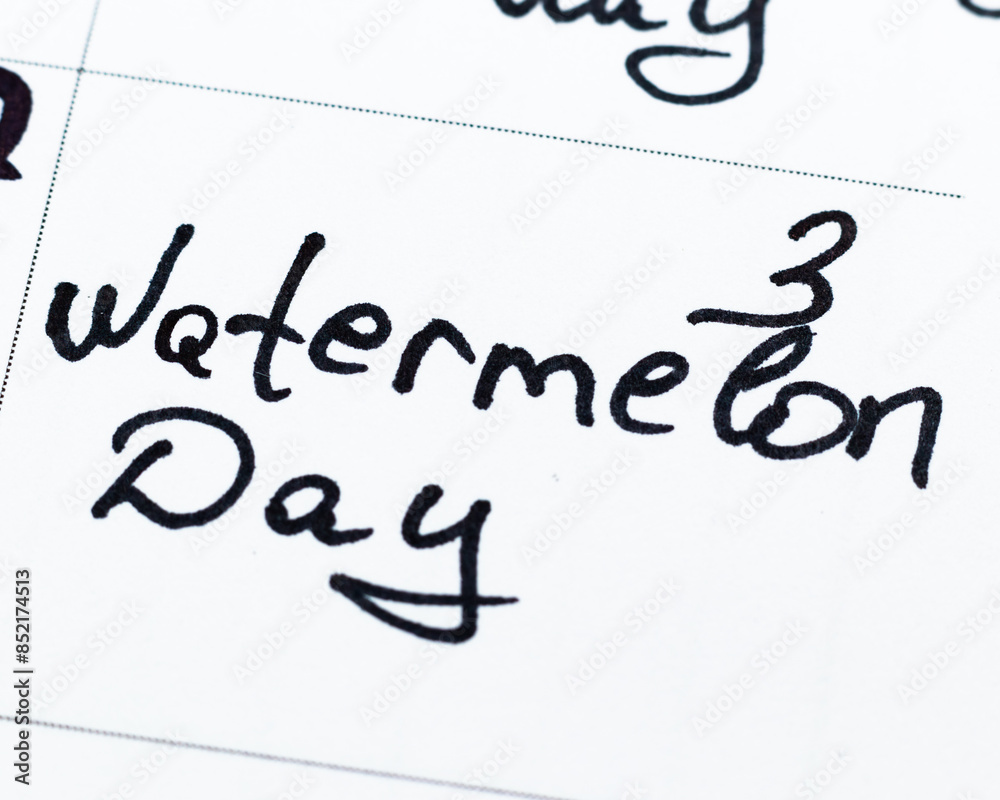 3
Watermelon
Day
Adobe Stock | #852174513